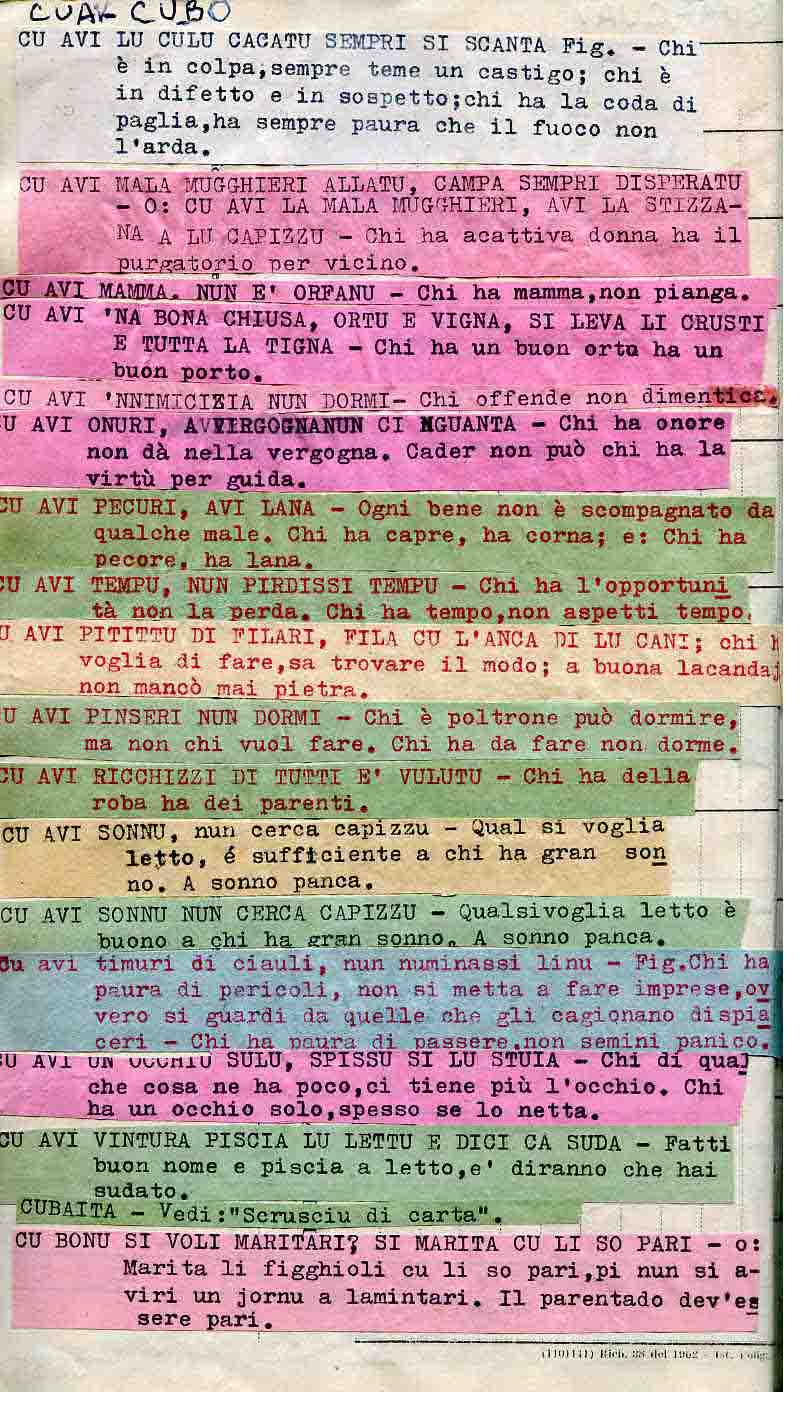 CUAV CUBO
CU AVI LU CULU CACATU SEMPRI SI SCANTA Fig. - Chi
è in colpa,sempre teme un castigo; chi è
in difetto e in sospetto;chi ha la coda di
paglia,ha sempre paura che il fuoco non
l'arda.
CU AVI MALA MUGGHIERI ALLATU, CAMPA SEMPRI DISPERATU
- O: CU AVI LA MALA MUGGHIERI, AVI LA STIZZA-
NA A LU CAPIZZU - Chi ha acattiva donna ha il
purgatorio per vicino.
CU AVI MAMMA. NUN E' ORFANU - Chi ha mamma,non pianga.
CU AVI 'NA BONA CHIUSA, ORTU E VIGNA, SI LEVA LI CRUSTI
E TUTTA LA TIGNA - Chi ha un buon orto ha un
buon porto.
CU AVI 'NNIMICIZIA NUN DORMI- Chi offende non dimentica.
U AVI ONURI, AVVIRGOGNANUN CI NGUANTA - Chi ha onore
non dà nella vergogna. Cader non può chi ha la
virtù per guida.
CU AVI PECURI, AVI LANA - Ogni bene non è scompagnato da
qualche male. Chi ha capre, ha corna; e: Chi ha
pecore, ha lana.
CU AVI TEMPU, NUN PIRDISSI TEMPU - Chi ha l'opportuni
tà non la perda. Chi ha tempo,non aspetti tempo.
U AVI PITITTU DI FILARI, FILA CU L'ANCA DI LU CANI; chi h
voglia di fare,sa trovare il modo; a buona lacandaj
non mancò mai pietra.
U AVI PINSERI NUN DORMI - Chi è poltrone può dormire,
ma non chi vuol fare. Chi ha da fare non dorme.
CU AVI RICCHIZZI DI TUTTI E' VULUTU - Chi ha della
roba ha dei parenti.
CU AVI SONNU, nun cerca capizzu - Qual si voglia
letto, é sufficiente a chi ha gran son
no. A sonno panca.
CU AVI SONNU NUN CERCA CAPIZZU - Qualsivoglia letto è
buono a chi ha gran sonno. A sonno panca.
Cu avi timuri di ciauli, nun numinassi linu - Fig.Chi ha
paura di pericoli, non si metta a fare imprese,ov
vero si guardi da quelle che gli cagionano dispia
ceri - Chi ha paura di passere,non semini panico.
U AVI UN OCCHIU SULU, SPISSU SI LU STUIA - Chi di qual
che cosa ne ha poco,ci tiene più l'occhio. Chi
ha un occhio solo,spesso se lo netta.
CU AVI VINTURA PISCIA LU LETTU E DICI CA SUDA - Fatti
buon nome e piscia a letto,e' diranno che hai
sudato.
CUBAITA - Vedi:"Scrusciu di carta".
CU BONU SI VOLI MARITARI? SI MARITA CU LI SO PARI - o:
Marita li figghioli cu li so pari,pi nun si a-
viri un jornu a lamintari. Il parentado dev'es
sere pari.
Rich. 38 del 1962 - Ist. Polig.